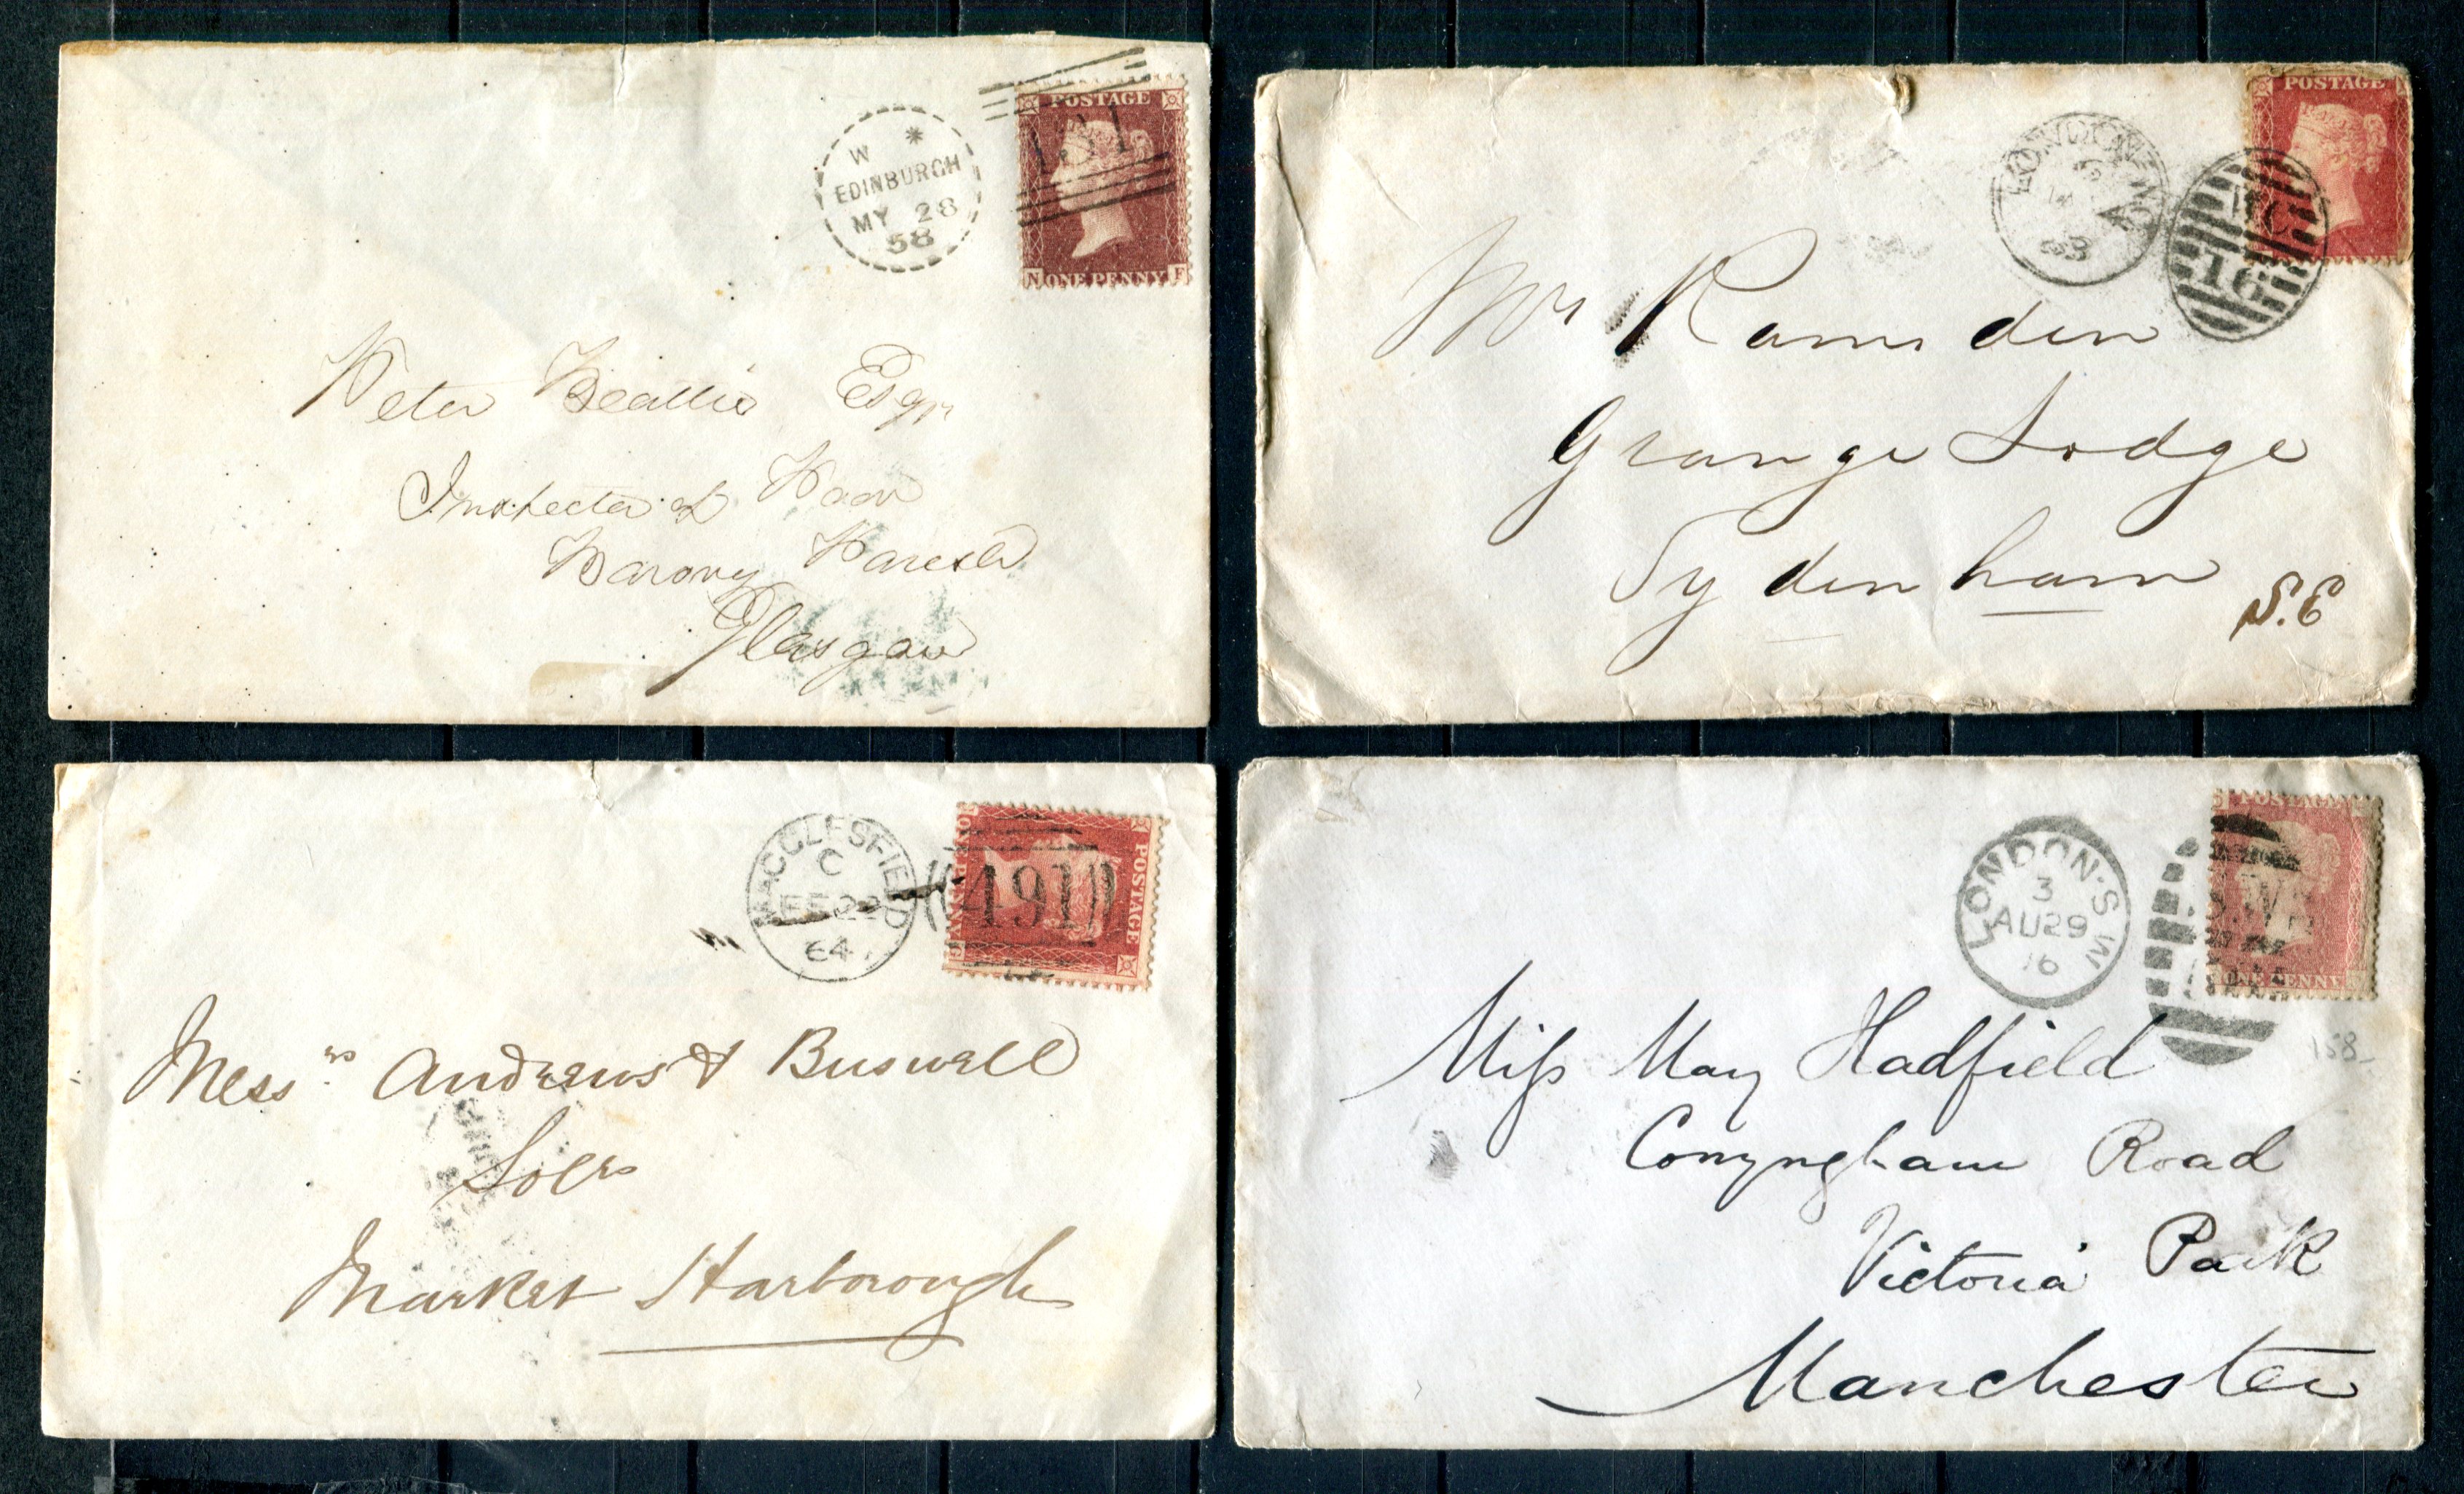 W *
EDINBURGH
MY 28
58
POSTAGE
131
N ONE PENNY F
Peter Beattie Esqr
Inspector of Poor
Barony Parish
Glasgow
LONDON
63
16
POSTAGE
Mr Ramsden
Grange Lodge
Sydenham
S.E
MACCLESFIELD
C
FE 22
64
491
POSTAGE
ONE PENNY
Messrs Andrews & Buswell
Solrs
Market Harborough
LONDON·S.W
3
AU29
76
POSTAGE
ONE PENNY
158
Miss May Hadfield
Conyngham Road
Victoria Park
Manchester